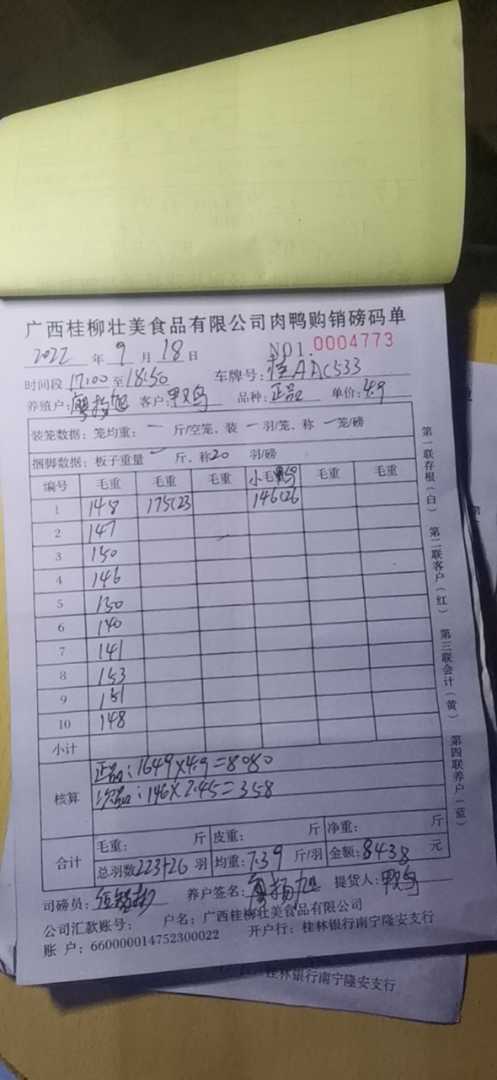 广西桂柳壮美食品有限公司肉鸭购销磅码单
2022 年 9 月 18 日 NO1. 0004773
时间段 17:00 至 18:50 车牌号: 桂AAC533
养殖户: 客户: 品种: 正品 单价: 4.9
装笼数据: 笼均重: 一 斤/空笼, 装 一 羽/笼, 称 一 笼/磅
捆脚数据: 板子重量 一 斤, 称 20 羽/磅
编号 毛重 毛重 毛重 小毛鸭 毛重 毛重
1 148 175(23 146(26
2 147
3 150
4 146
5 150
6 140
7 141
8 153
9 151
10 148
小计
核算 正品: 1649×4.9=8080
次品: 146×2.45=358
合计 毛重: 斤 皮重: 斤 净重: 斤
总羽数 223+26 羽 均重: 7.39 斤/羽 金额: 8438 元
司磅员: 养户签名: 提货人:
公司汇款账号: 户名: 广西桂柳壮美食品有限公司
账 户: 660000014752300022 开户行: 桂林银行南宁隆安支行
第一联存根(白) 第二联客户(红) 第三联会计(黄) 第四联养户(蓝)
桂林银行南宁隆安支行